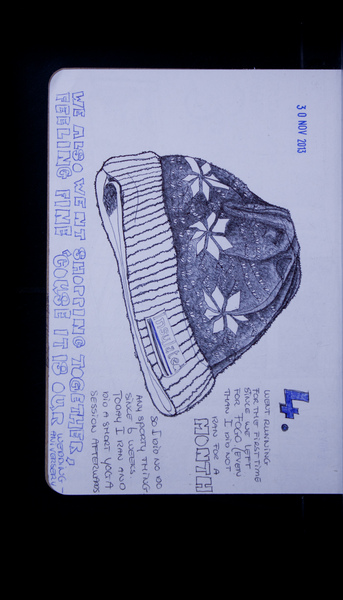 30 NOV 2013
4.
WENT RUNNING
FOR THE FIRST TIME
SINCE WE LEFT
FOR FOGO (EVEN
THAN I DID NOT
RAN FOR A
MONTH
SO I DID NO DO
ANY SPORTY THING
SINCE 6 WEEKS.
TODAY I RAN AND
DID A SHORT YOGA
SESSION AFTERWARDS
Insulated
WE ALSO WENT SHOPPING TOGETHER,
FEELING FINE 'COUSE IT IS OUR WEDDING-
ANIVERSERY